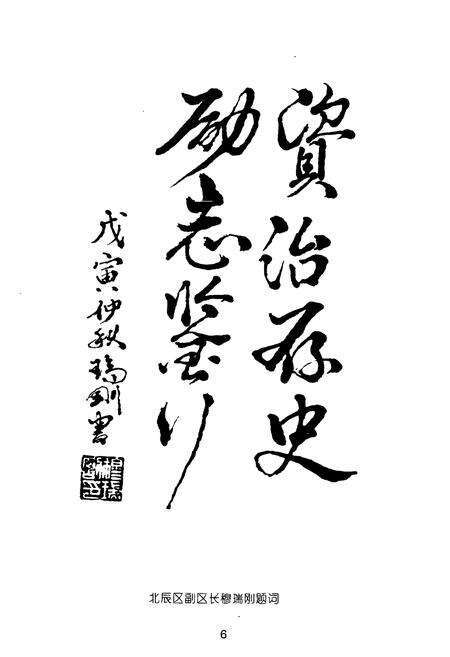 資治存史
励志鉴行
戊寅仲秋瑞刚書
北辰区副区长穆瑞刚题词
6